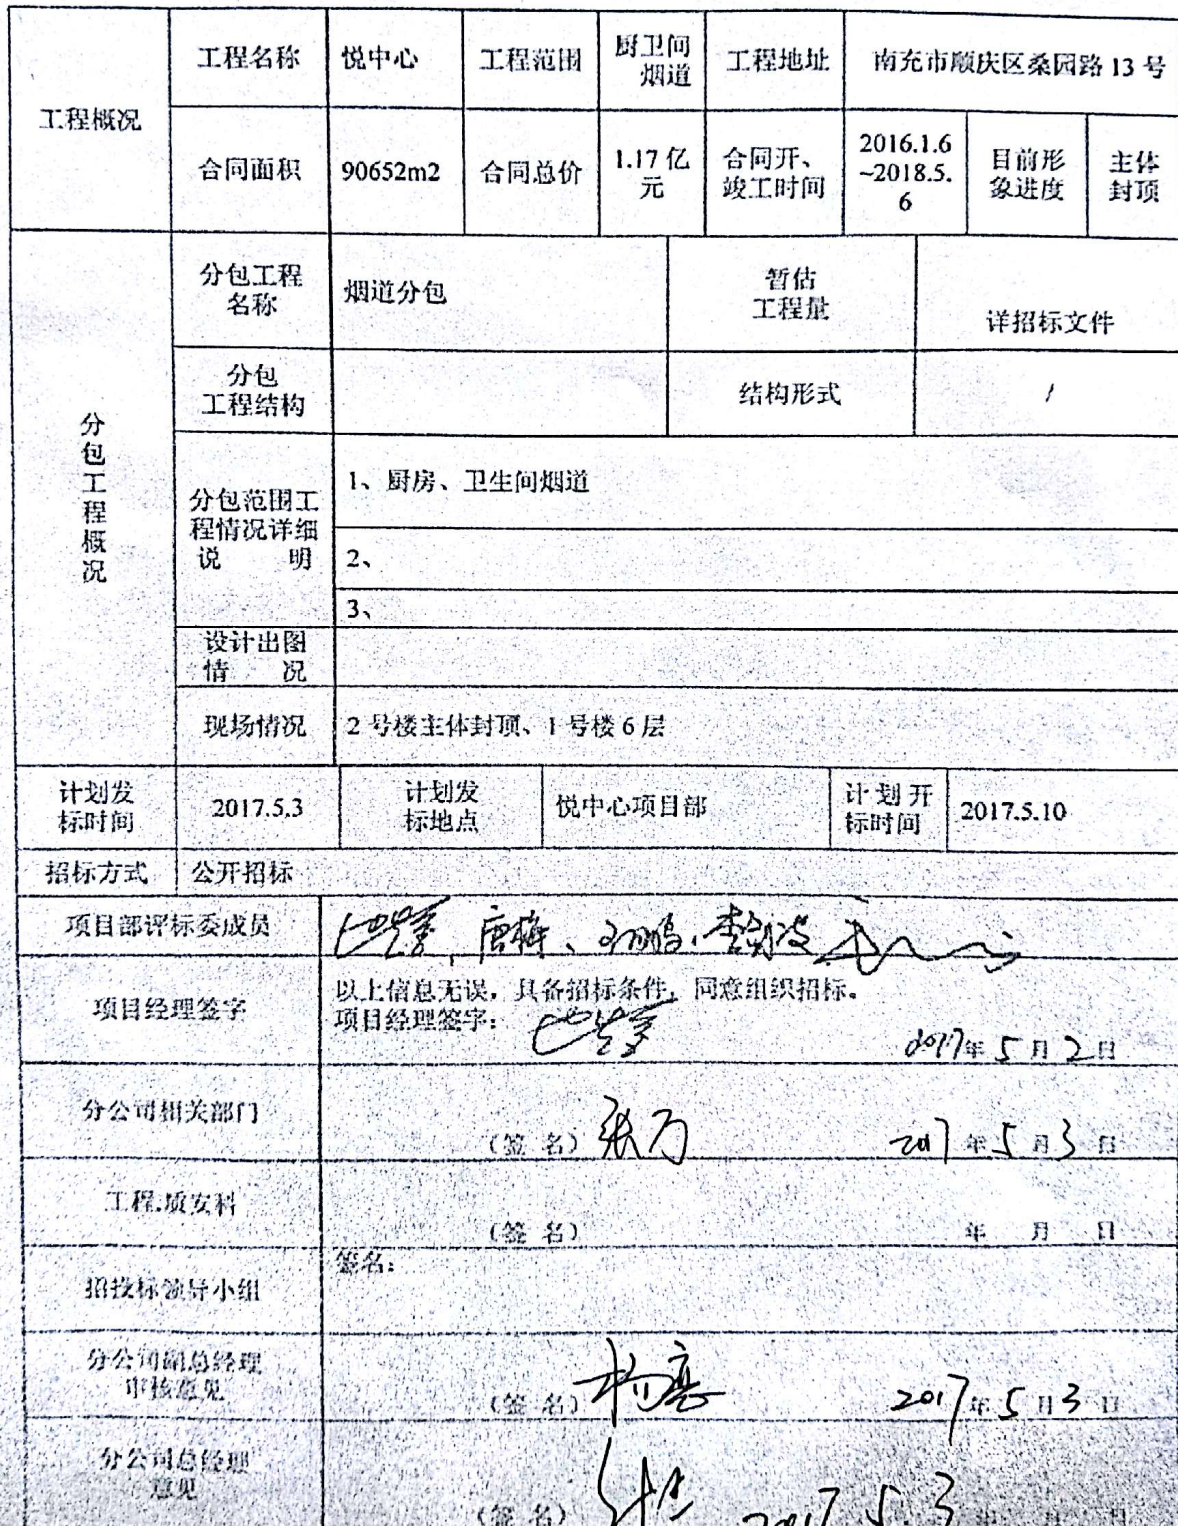 工程概况
工程名称
悦中心
工程范围
厨卫间
烟道
工程地址
南充市顺庆区桑园路 13 号
合同面积
90652m2
合同总价
1.17 亿
元
合同开、
竣工时间
2016.1.6
~2018.5.
6
目前形
象进度
主体
封顶
分包工程概况
分包工程
名称
烟道分包
暂估
工程量
详招标文件
分包
工程结构
结构形式
/
分包范围工
程情况详细
说 明
1、厨房、卫生间烟道
2、
3、
设计出图
情 况
现场情况
2 号楼主体封顶、1 号楼 6 层
计划发
标时间
2017.5.3
计划发
标地点
悦中心项目部
计 划 开
标时间
2017.5.10
招标方式
公开招标
项目部评标委成员
唐梅、
项目经理签字
以上信息无误，具备招标条件，同意组织招标。
项目经理签字：
2017年 5 月 2 日
分公司相关部门
（签 名）张万
2017 年 5 月 3 日
工程.质安科
（签 名）
年 月 日
招投标领导小组
签名：
分公司副总经理
审核意见
（签 名）杨亮
2017 年 5 月 3 日
分公司总经理
意见
（签 名）
2017 5 3
年 月 日